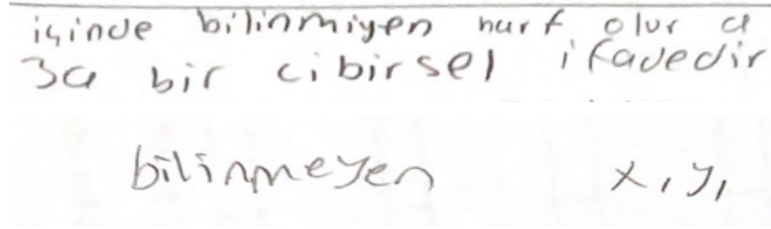 içinde bilinmiyen harf olur a
3a bir cibirsel ifadedir
bilinmeyen x, y,